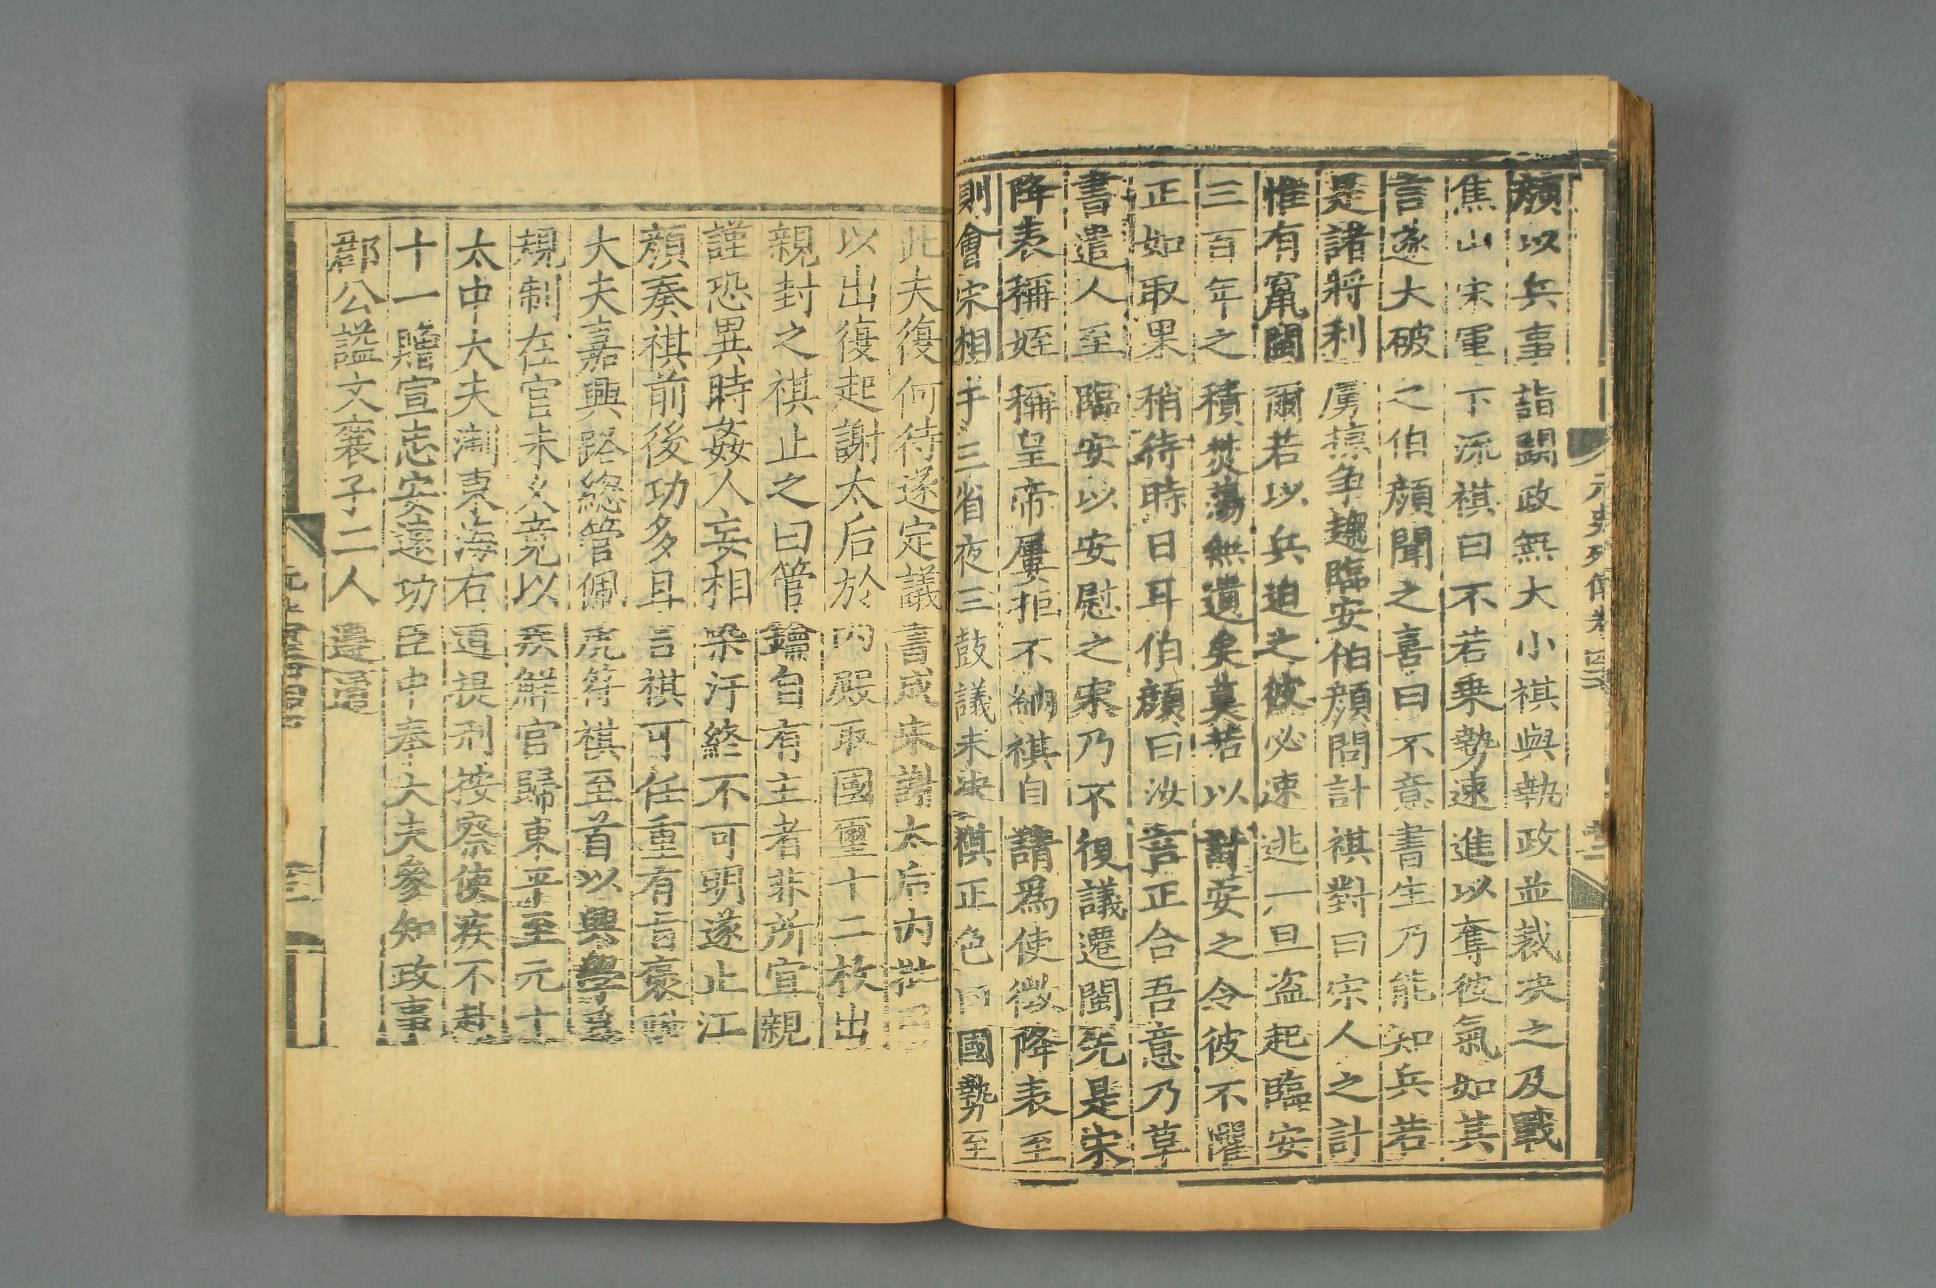 顔以兵事詣闕政無大小祺與執政並裁决之及戰
焦山宋軍下流祺曰不若乗勢速進以奪彼氣如其
言遂大破之伯顔聞之喜曰不意書生乃能知兵若
是諸將利虜掠争趨臨安伯顔問計祺對曰宋人之計
惟有竄閩爾若以兵迫之彼必速逃一旦盗起臨安
三百年之積焚蕩無遺矣莫若以計安之令彼不懼
正如取果稍待時日耳伯顔曰汝言正合吾意乃草
書遣人至臨安以安慰之宋乃不復議遷閩先是宋
降表稱姪稱皇帝屢拒不納祺自請爲使徴降表至
則會宋相于三省夜三鼓議未决祺正色曰國勢至
此夫復何待遂定議書成来謝太后内
以出復起謝太后於内殿取國璽十二枚出
親封之祺止之曰管鑰自有主者非所宜親
謹恐異時姦人妄相染汙終不可明遂止江
顔奏祺前後功多且言祺可任重有
大夫嘉興路總管佩虎符祺至首以興學爲
規制在官未久竟以疾解官歸東平至元十
太中大夫浙東海右道提刑按察使疾不赴
十一贈宣忠安遠功臣中奉大夫參知政事
郡公諡文襄子二人遵適
元史列傳卷